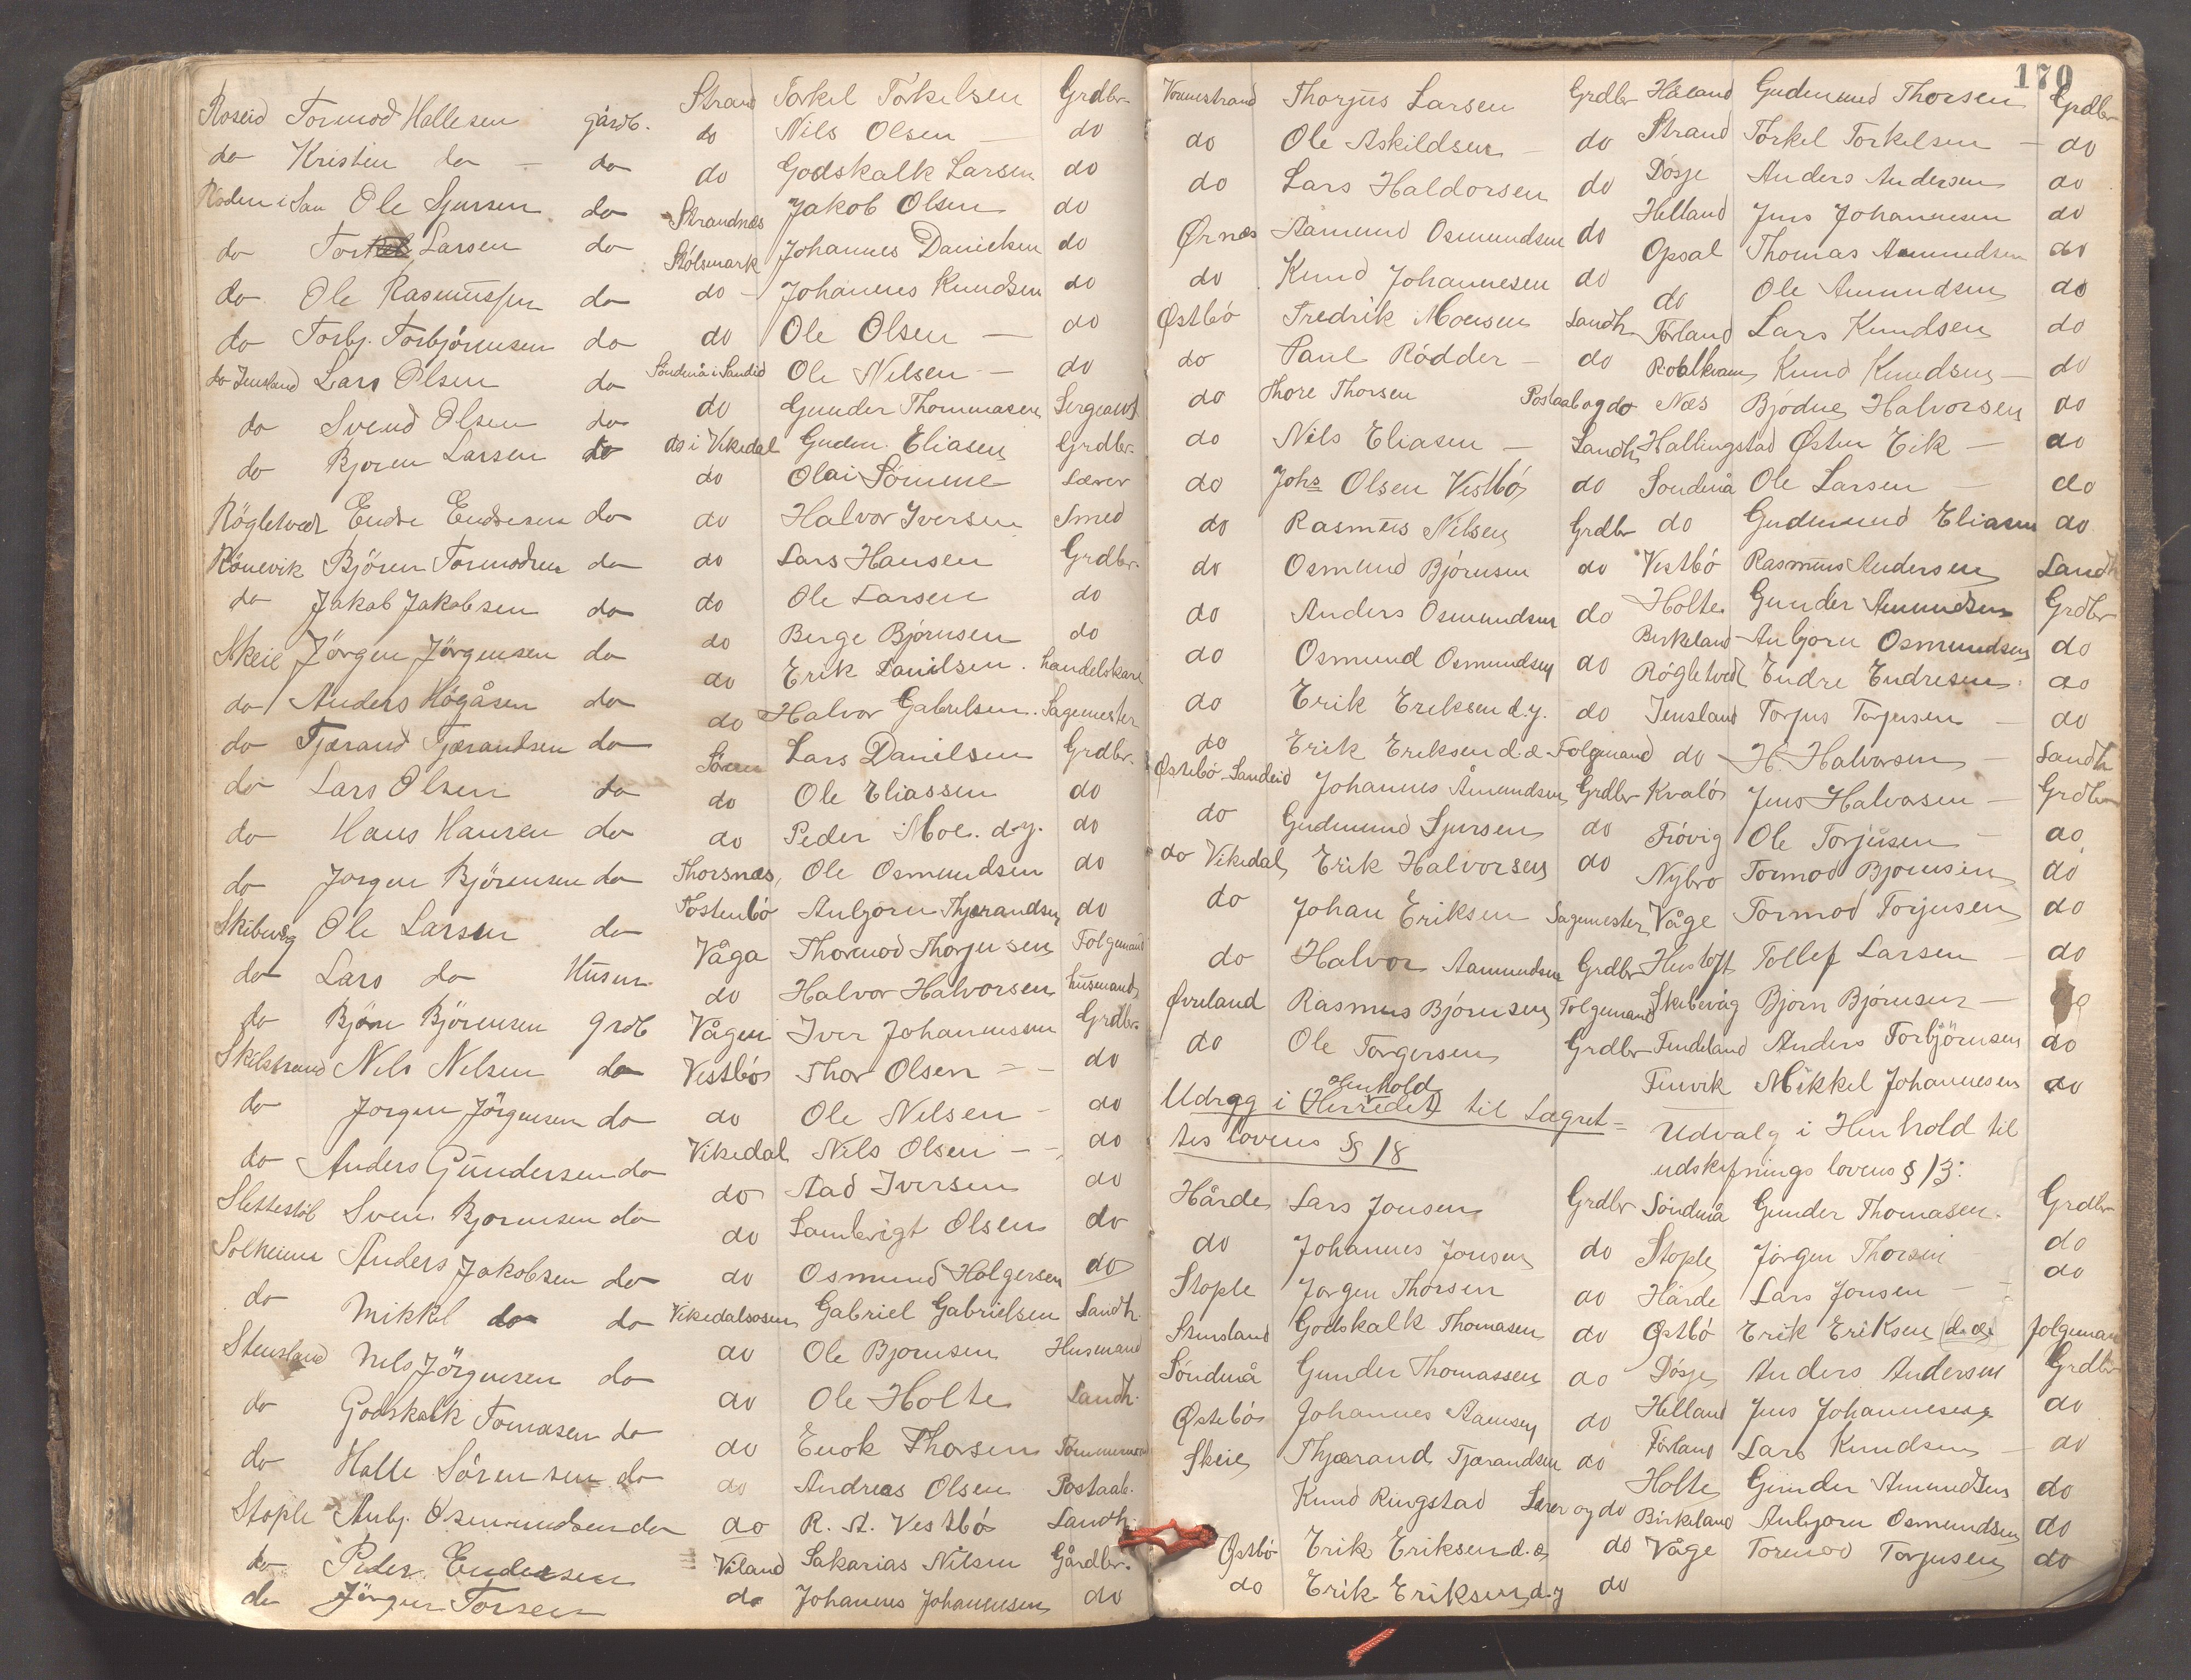 Roseid Tormod Hallesen gårdb.
do Kristen do — do
Røden i San Ole Sjursen do
do Torkel Larsen do
do Ole Rasmussen do
do Torbj. Torbjörnsen do
do Jensland Lars Olsen do
do Svend Olsen do
do Bjoren Larsen do
Rögletvedt Endre Endresen do
Rönevik Björen Tormodsen do
do Jakob Jakobsen do
Skeie Jörgen Jörgensen do
do Anders Högåsen do
do Tjærand Tjærandsen do
do Lars Olsen do
do Hans Hansen do
do Jorgen Björensen do
Skibevåg Ole Larsen do
do Lars do Husm.
do Björn Björensen grdb
Skibstrand Nils Nelsen do
do Jorgen Jörgensen do
do Anders Gundersen do
Slettestöl Sven Bjornsen do
Solheim Anders Jakobsen do
do Mikkel do do
Stensland Nils Jörgensen do
do Godskalk Tomasen do
do Halle Sörensen do
Stople Anbj. Osmundsen do
do Peder Endresen
do Jörgen Torsen
Strand Torkel Torkelsen Grdbr.
do Nils Olsen — do
do Godskalk Larsen do
Strandnæs Jakob Olsen do
Stølsmark Johannes Danielsen do
do Johannes Knudsen do
do Ole Olsen — do
Søndenå i Sandeid Ole Nelsen — do
do Gunder Thommasen Sergeant
do i Vikedal Gudm. Eliasen Grdbr.
do Olai Sømme Lærer
do Halvor Iversen Smed
do Lars Hansen Grdbr.
do Ole Larsen do
do Berge Bjørnsen do
do Erik Danilsen. handelskarl
do Halvor Gabrelsen. Sagemester
Søren Lars Danilsen Grdbr.
do Ole Eliassen do
do Peder Moe. d.y. do
Thorsnæs, Ole Osmundsen do
Tostenbø Anbjorn Thjærandsen do
Våga Thormod Thorjusen Folgemand
do Halvor Halvorsen husmand
Vågen Iver Johannesen Grdbr.
Vestbø Thor Olsen — do
do Ole Nelsen — do
Vikedal Nils Olsen — do
do Aad Iversen do
do Lambrigt Olsen do
do Osmund Holgersen do
Vikedalsosen Gabriel Gabrielsen Landh.
do Ole Bjornsen Husmand
do Ole Holte Landh.
do Enok Thorsen Tömmermand
do Andreas Olsen Postaab.
do R. A. Vestbø Landh.
Viland Sakarias Nilsen Gårdbr.
do Johannes Johannesen do
170
Vormestrand Thorjus Larsen Grdbr
do Ole Askildsen — do
do Lars Haldorsen do
Ørnæs Aamund Osmundsen do
do Knud Johannesen do
Østbø Fredrik Monsen Landh
do Paul Rødder — do
do Thore Thorsen Postaab og do
do Nils Eliasen — Landh
do Johs Olsen Vestbø do
do Rasmus Nilsen Grdbr
do Osmund Bjørnsen do
do Anders Osmundsen do
do Osmund Osmundsen do
do Erik Ereksen d.y. do
do Erik Eriksen d.æ. Folgemand
Østebø Sandeid Johannes Åmundsen Grdbr
do Gudmund Sjursen do
do Vikedal Erik Halvorsen do
do Johan Eriksen Sagemester
do Halvor Aamundsen Grdbr
Øvreland Rasmus Bjørnsen Folgemand
do Ole Torgersen Grdbr
Henhold
Udvag i Herredet til Lagret-
tes lovens § 18
Hårde Lars Jonsen Grdbr
do Johannes Jonsen do
Stople Jorgen Thorsen do
Stensland Godskalk Thomasen do
Søndenå Gunder Thomassen do
Østebø Johannes Aamsen do
Skeie Thjærand Tjærandsen do
Knud Ringstad Lærer og do
Østbø Erik Eriksen d.æ do
do Erik Eriksen d.y do
Håland Gudmund Thorsen Grdbr
Strand Torkel Torkelsen — do
Døsje Anders Andersen do
Helland Jens Johannesen do
Opsal Thomas Amundsen do
do Ole Amundsen do
Førland Lars Knudsen do
Roalkvam Knud Knudsen — do
Næs Bjødne Halvorsen do
Hallingstad Østen Eik — do
Søndenå Ole Larsen — do
do Gudmund Eliasen do
Vestbø Rasmus Andersen Landh
Holte Gunder Amundsen Grdbr
Birkeland Anbjorn Osmundsen do
Røgletvedt Endre Endresen do
Jensland Torjus Torjusen — do
do H. Halvorsen — Landh
Kvaløs Jens Halvorsen — Grdbr
Frøvig Ole Torjusen — do
Nybro Tormod Bjornsen do
Våge Tormod Torjusen do
Hustoft Tollef Larsen — do
Skibevåg Bjørn Bjørnsen — do
Tendeland Anders Torbjörnsen do
Tenvik Mikkel Johannesen do
Udvalg i Henhold til
udskifnings lovens § 13:
Søndenå Gunder Thomasen. Grdbr
Stople Jørgen Thorsen do
Hårde Lars Jonsen — do
Østbø Erik Eriksen (d.æ.) folgeman
Døsje Anders Andersen Grdbr
Helland Jens Johannesen do
Førland Lars Knudsen — do
Holte Gunder Amundsen do
Birkeland Anbjorn Osmundsen do
Våge Tormod Torjusen do